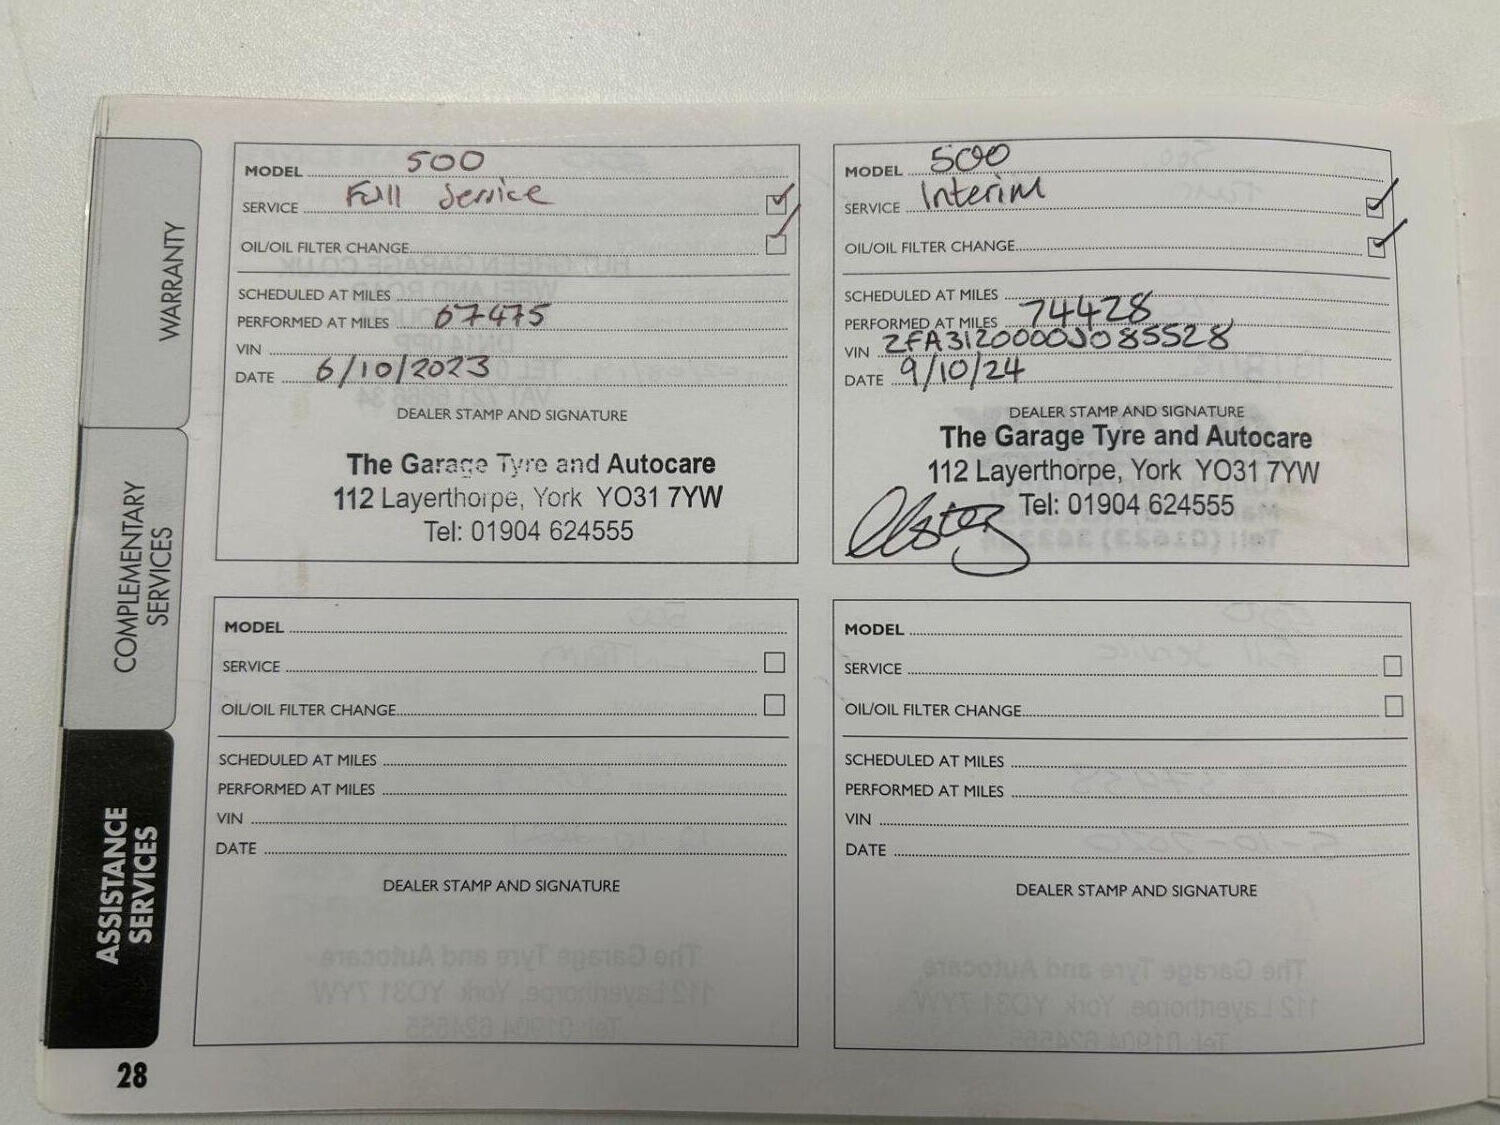 WARRANTY
COMPLEMENTARY
SERVICES
ASSISTANCE
SERVICES
MODEL 500
SERVICE Full Service
OIL/OIL FILTER CHANGE
SCHEDULED AT MILES
PERFORMED AT MILES 67475
VIN
DATE 6/10/2023
DEALER STAMP AND SIGNATURE
The Garage Tyre and Autocare
112 Layerthorpe, York YO31 7YW
Tel: 01904 624555
MODEL 500
SERVICE Interim
OIL/OIL FILTER CHANGE
SCHEDULED AT MILES
PERFORMED AT MILES 74428
VIN ZFA3120000J085528
DATE 9/10/24
DEALER STAMP AND SIGNATURE
The Garage Tyre and Autocare
112 Layerthorpe, York YO31 7YW
Tel: 01904 624555
MODEL
SERVICE
OIL/OIL FILTER CHANGE
SCHEDULED AT MILES
PERFORMED AT MILES
VIN
DATE
DEALER STAMP AND SIGNATURE
MODEL
SERVICE
OIL/OIL FILTER CHANGE
SCHEDULED AT MILES
PERFORMED AT MILES
VIN
DATE
DEALER STAMP AND SIGNATURE
28